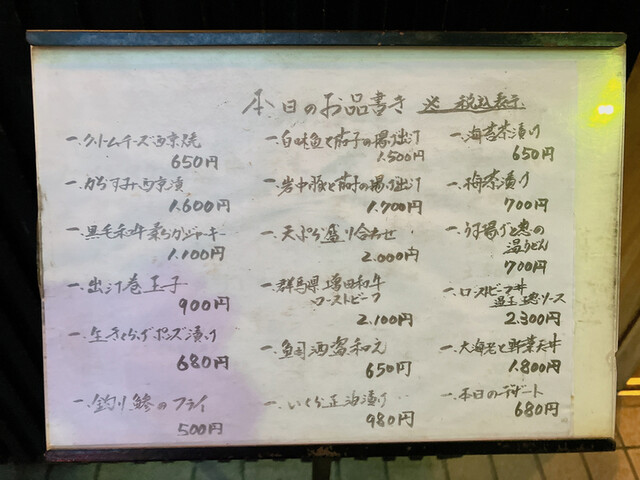 本日のお品書き ※ 税込表示
一.クリームチーズ西京焼
650円
一.からすみ西京漬
1.600円
一.黒毛和牛柔らかジャーキー
1.100円
一.出汁巻玉子
900円
一.生きくらげポン漬け
680円
一.釣り鯵のフライ
500円
一.白味魚と茄子の揚げ出汁
1.500円
一.岩中豚と茄子の揚げ出汁
1.700円
一.天ぷら盛り合わせ
2.000円
一.群馬県増田和牛
ローストビーフ
2.100円
一.酒盗和え
650円
一.いくら正油漬け
980円
一.海苔茶漬け
650円
一.梅茶漬け
700円
一.揚げと葱の
温うどん
700円
一.ローストビーフ丼
温玉 ソース
2.300円
一.大海老と野菜天丼
1.800円
一.本日のデザート
680円